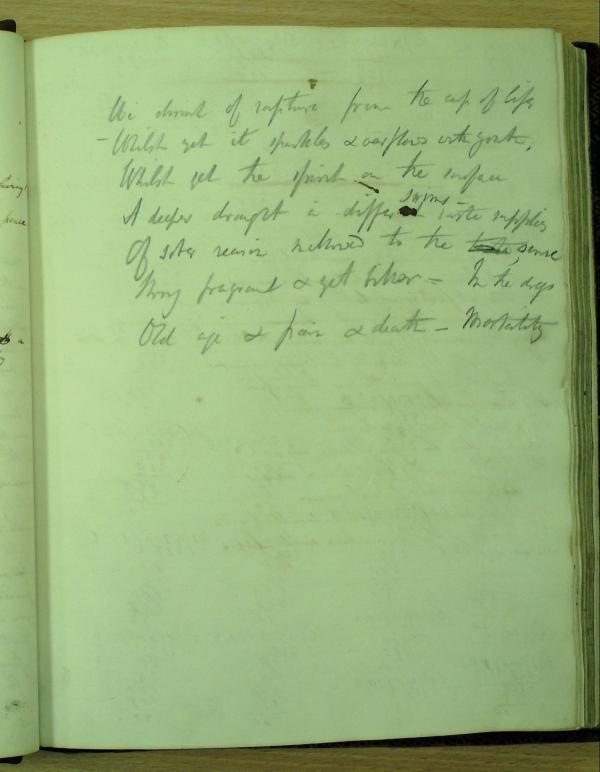 We drink of rapture from the cup of life
- Whilst yet it sparkles & overflows with youth,
Whilst yet the spirit on the surface
swims -
A deeper draught a different taste supplies
Of sober reason mellowed to the sense
Strong fragrant & yet bitter = In the dregs
Old age & pain & death - Mortality